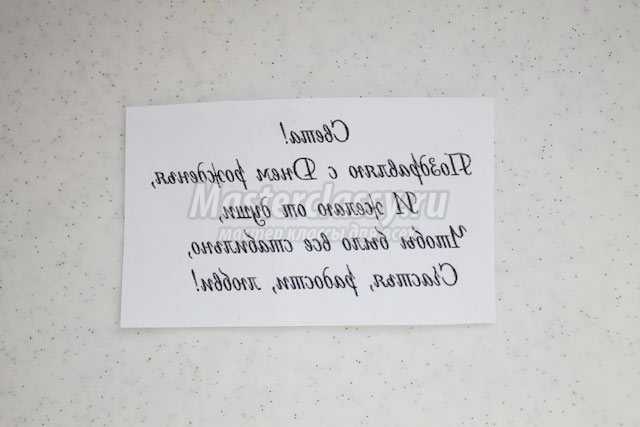 Света!
Поздравляю с Днем рожденья,
И желаю от души,
Чтобы было все стабильно,
Счастья, радости, любви!
Masterclassy.ru
мастер классы для всех